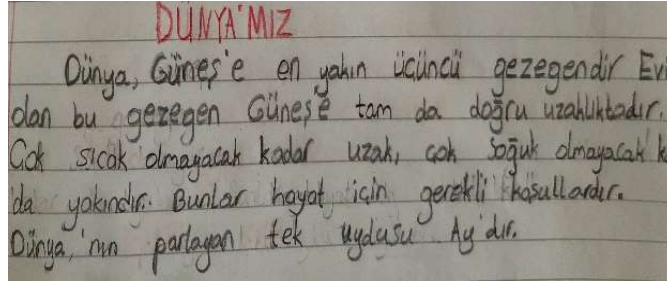 DÜNYA'MIZ
Dünya, Güneş'e en yakın üçüncü gezegendir Evi
olan bu gezegen Güneş'e tam da doğru uzaklıktadır.
Çok sıcak olmayacak kadar uzak, çok soğuk olmayacak k
da yakındır. Bunlar hayat için gerekli koşullardır.
Dünya,'nın parlayan tek uydusu Ay'dır.